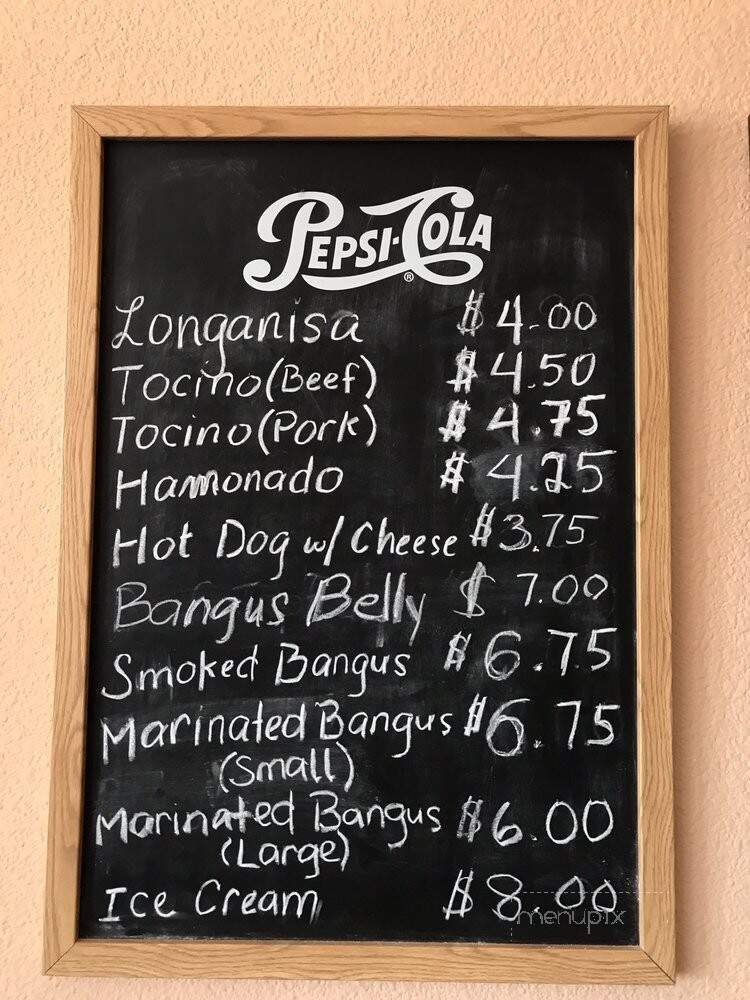 PEPSI-COLA®
Longanisa $4.00
Tocino (Beef) $4.50
Tocino (Pork) $4.75
Hamonado $4.25
Hot Dog w/ Cheese $3.75
Bangus Belly $7.00
Smoked Bangus $6.75
Marinated Bangus $6.75
(Small)
Marinated Bangus $6.00
(Large)
Ice Cream $8.00
menupix